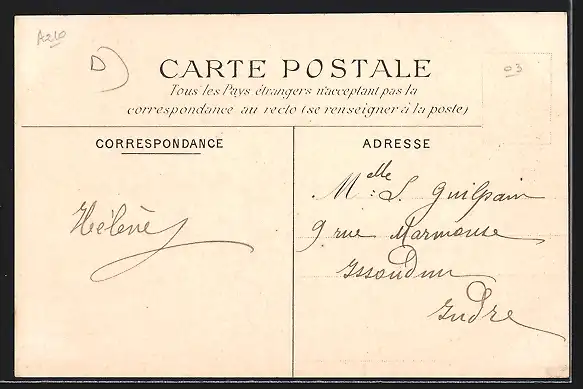 A210
D)
03
CARTE POSTALE
Tous les Pays étrangers n'acceptant pas la
correspondance au recto (se renseigner à la poste)
CORRESPONDANCE
ADRESSE
Hélène
Melle : S. Guilpain
9 rue Marmouse
Issoudun
Indre